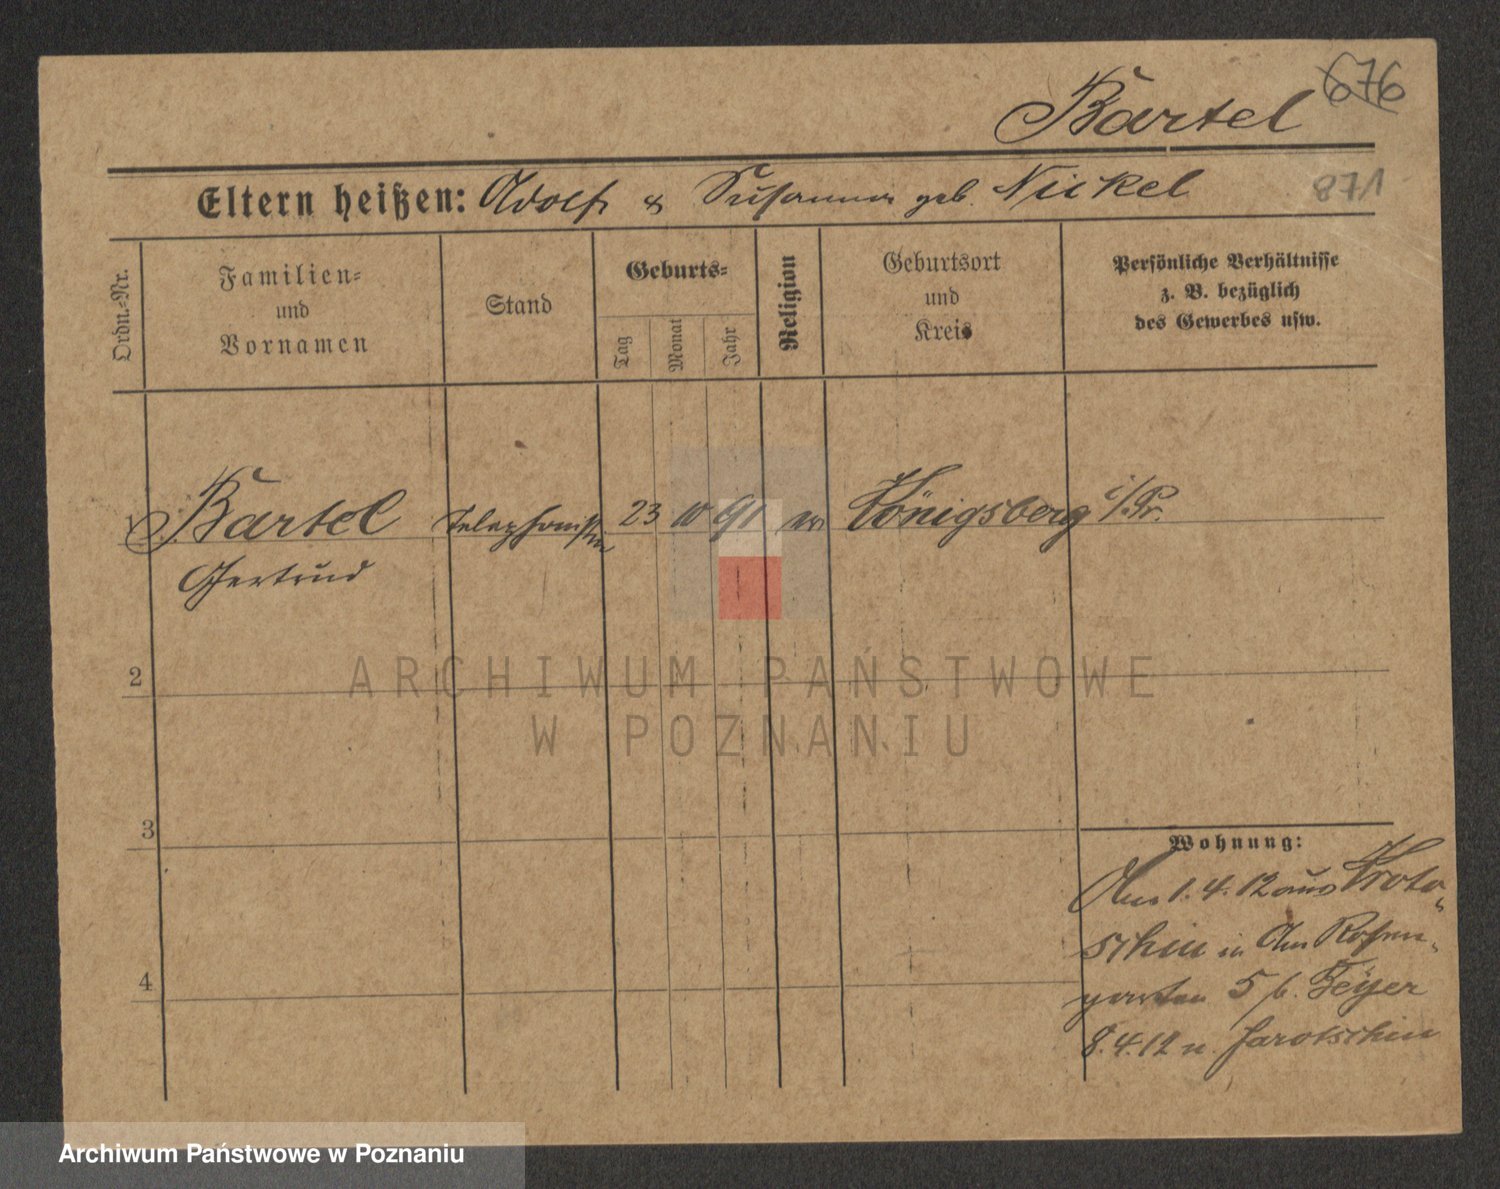 676
Bartel
Eltern heißen: Adolf & Susanna geb. Nickel
871
Ordn.-Nr.
Familien-
und
Vornamen
Stand
Geburts-
Tag
Monat
Jahr
Religion
Geburtsort
und
Kreis
Persönliche Verhältnisse
z. B. bezüglich
des Gewerbes usw.
1 Bartel Telephonistin 23 10 91 ev. Königsberg i/Pr.
Gertrud
2
ARCHIWUM PAŃSTWOWE
W POZNANIU
3
Wohnung:
Am 1. 4. 12 aus Kroto-
schin in Am Rosen-
4
garten 5 b. Feyer
8. 4. 12 n. Jarotschin
Archiwum Państwowe w Poznaniu